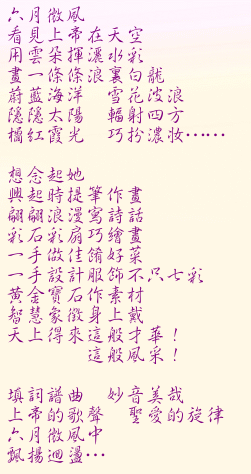 六月微風
看見上帝在天空
用雲朵揮灑水彩
畫一條條浪裏白龍
蔚藍海洋　雪花波浪
隱隱太陽　輻射四方
橘紅霞光　巧扮濃妝……

想念起她
興起時提筆作畫
翩翩浪漫寫詩話
彩石彩扇巧繪畫
一手做佳餚好菜
一手設計服飾不只七彩
黃金寶石作素材
智慧象徵身上戴
天上得來這般才華！
這般風采！

填詞譜曲　妙音美哉
上帝的歌聲　聖愛的旋律
六月微風中
飄揚迴盪…